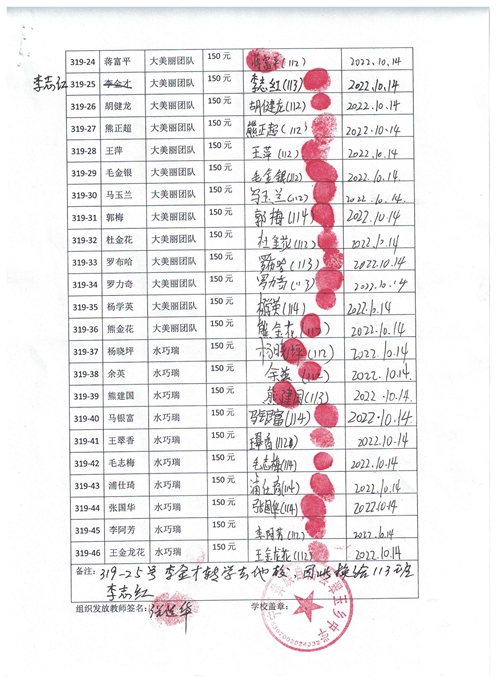 319-24 蒋富平 大美丽团队 150 元 蒋富平(112) 2022.10.14
李志红 319-25 李金才 大美丽团队 150 元 李志红(113) 2022.10.14
319-26 胡健龙 大美丽团队 150 元 胡健龙(112) 2022.10.14
319-27 熊正超 大美丽团队 150 元 熊正超(112) 2022.10.14
319-28 王萍 大美丽团队 150 元 王萍(112) 2022.10.14
319-29 毛金银 大美丽团队 150 元 毛金银(112) 2022.10.14
319-30 马玉兰 大美丽团队 150 元 马玉兰(112) 2022.10.14
319-31 郭梅 大美丽团队 150 元 郭梅(114) 2022.10.14
319-32 杜金花 大美丽团队 150 元 杜金花(112) 2022.10.14
319-33 罗布哈 大美丽团队 150 元 罗布哈(113) 2022.10.14
319-34 罗力奇 大美丽团队 150 元 罗力奇(113) 2022.10.14
319-35 杨学英 大美丽团队 150 元 杨学英(114) 2022.10.14
319-36 熊金花 大美丽团队 150 元 熊金花(112) 2022.10.14
319-37 杨晓坪 水巧瑞 150 元 杨晓坪(112) 2022.10.14
319-38 余英 水巧瑞 150 元 余英(112) 2022.10.14
319-39 熊建国 水巧瑞 150 元 熊建国(113 2022.10.14
319-40 马银富 水巧瑞 150 元 马银富(114) 2022.10.14
319-41 王翠香 水巧瑞 150 元 王翠香(112) 2022.10.14
319-42 毛志梅 水巧瑞 150 元 毛志梅(114) 2022.10.14
319-43 浦仕琦 水巧瑞 150 元 浦仕琦(114) 2022.10.14
319-44 张国华 水巧瑞 150 元 张国华(114) 2022.10.14
319-45 李阿芳 水巧瑞 150 元 李阿芳(112) 2022.10.14
319-46 王金龙花 水巧瑞 150 元 王金龙花(112) 2022.10.14
备注: 319-25号李金才转学去他校,因此换给113班
李志红
组织发放教师签名: 学校盖章: